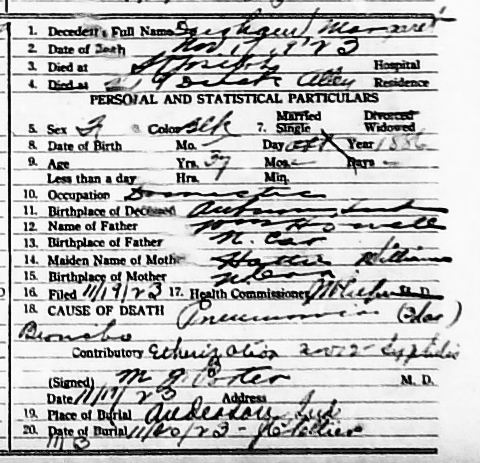 1. Decedent's Full Name Margaret
2. Date of Death Nov. 17, 1923
3. Died at St Joseph Hospital
4. Died at Alley Residence
PERSONAL AND STATISTICAL PARTICULARS
5. Sex F Color Blk 7. Married Single Divorced Widowed
8. Date of Birth Mo. Day Year 1886
9. Age Yrs. 37 Mos. Days
Less than a day Hrs. Min.
10. Occupation Domestic
11. Birthplace of Deceased Auburn, Ind
12. Name of Father Howell
13. Birthplace of Father N. Car
14. Maiden Name of Mother Hattie Williams
15. Birthplace of Mother N. Car
16. Filed 11/19/23 17. Health Commissioner M. D.
18. CAUSE OF DEATH Pneumonia
Broncho
Contributory Etherization Syphilis
(Signed) M. D.
Date 11/19/23 Address
19. Place of Burial Anderson, Ind
20. Date of Burial 11/20/23 -